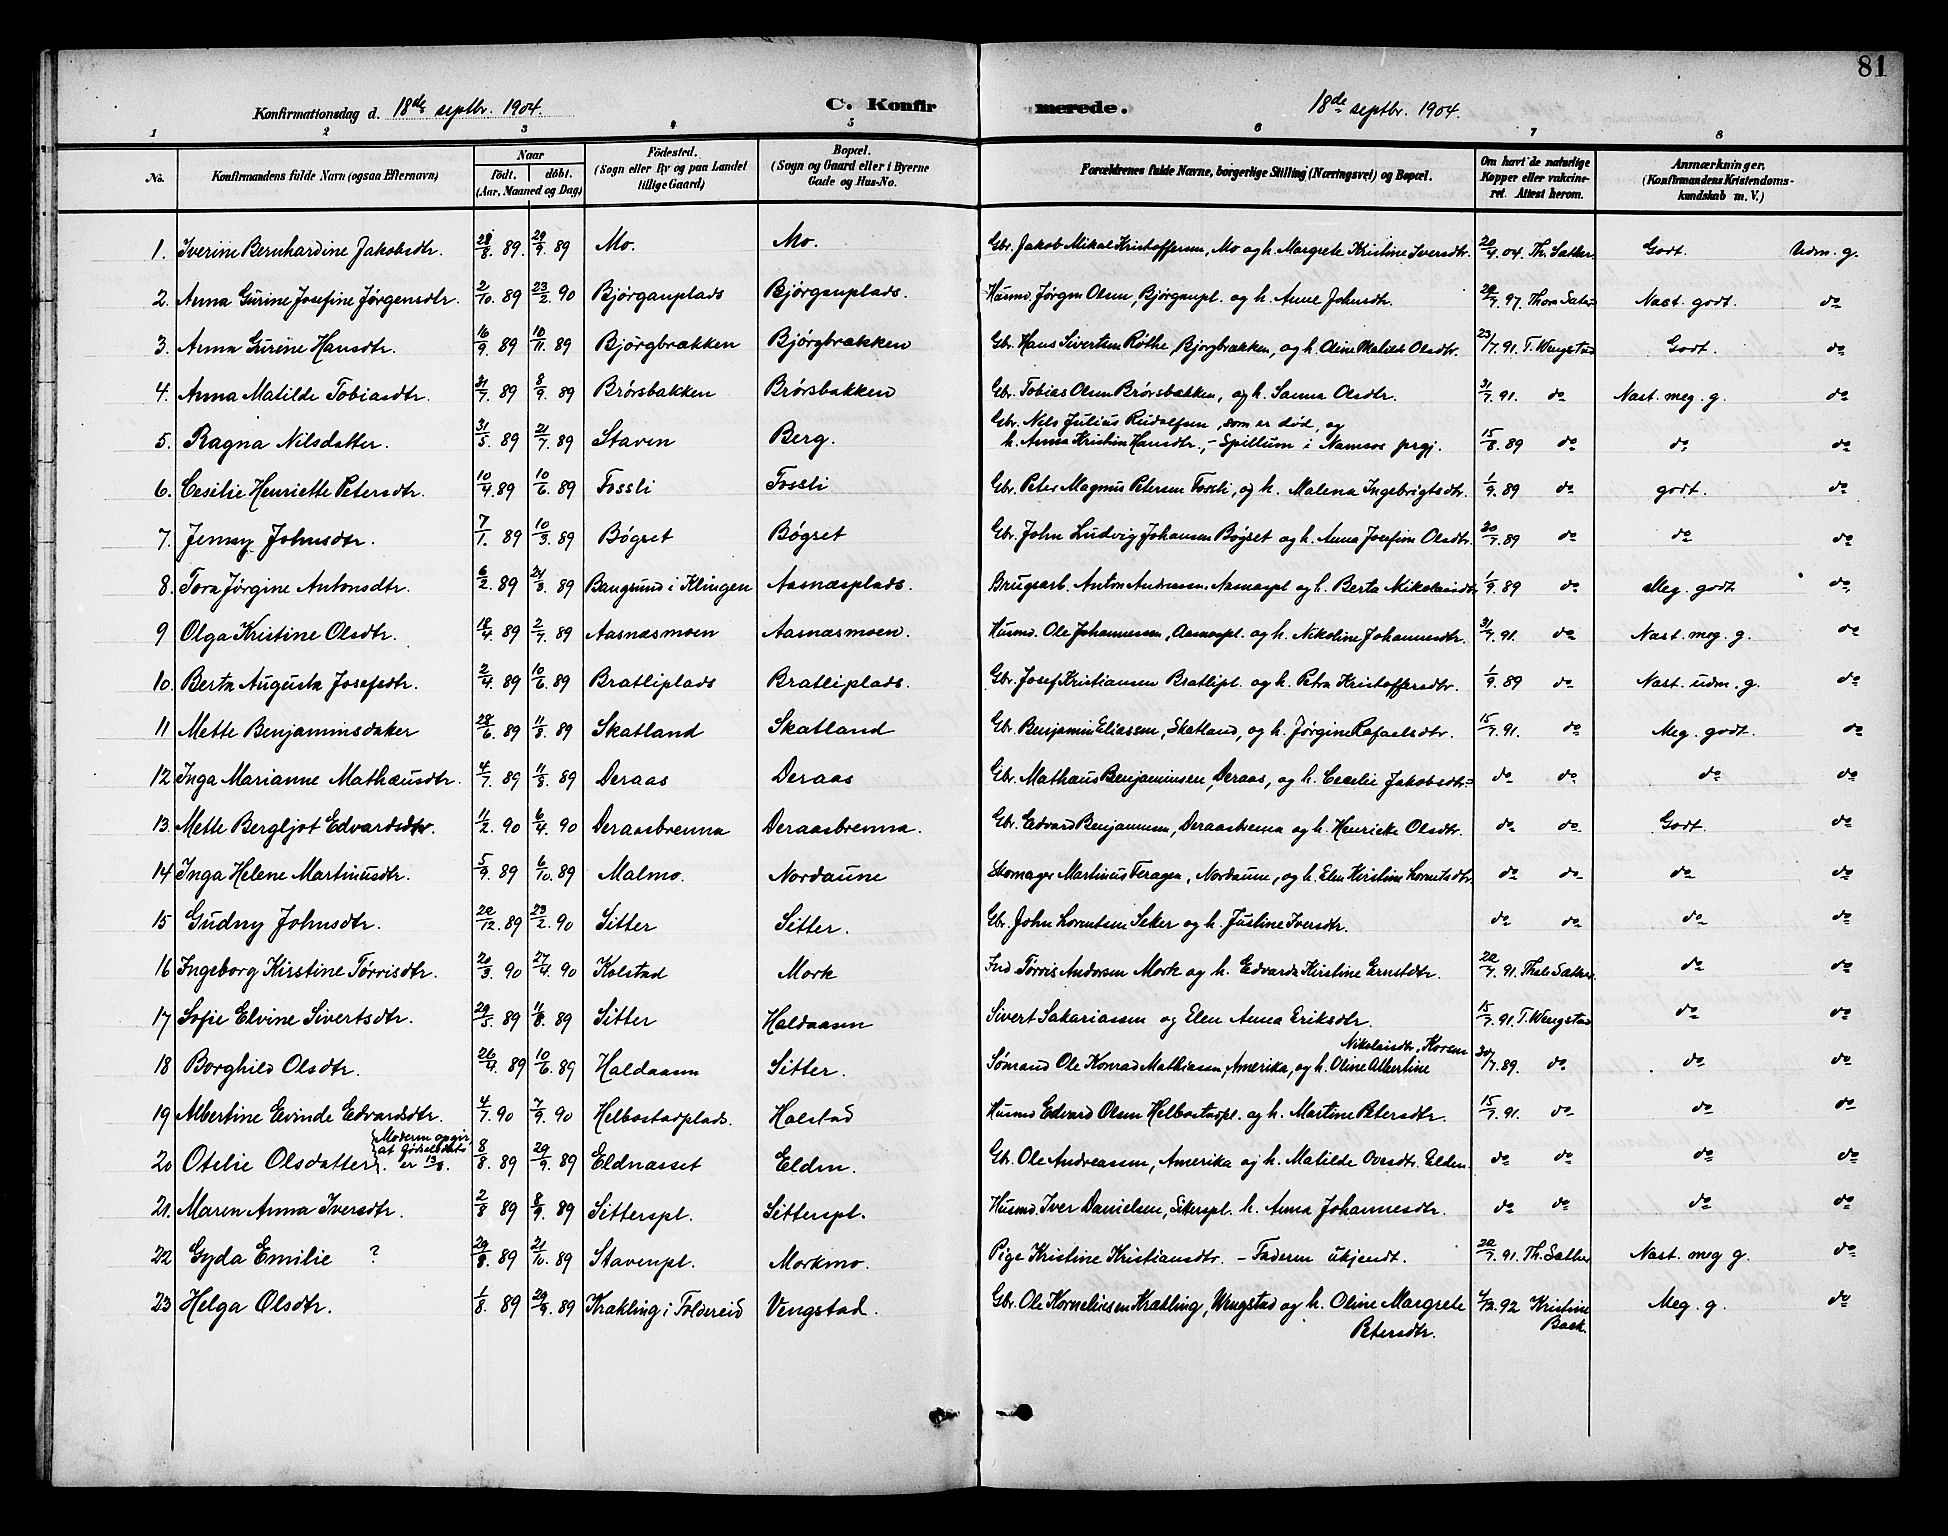 81
Konfirmationsdag d. 18de septbr. 1904. C. Konfirmerede. 18de septbr. 1904.
1 2 3 4 5 6 7 8
No. Konfirmandens fulde Navn (ogsaa Efternavn) Naar födt. döbt. (Aar, Maaned og Dag) Födested. (Sogn eller By og paa Landet tillige Gaard) Bopæl. (Sogn og Gaard eller i Byerne Gade og Hus-No. Forældrenes fulde Navne, borgerlige Stilling (Næringsvei) og Bopæl. Om havt de naturlige Kopper eller vakcineret. Attest herom. Anmærkninger. (Konfirmandens Kristendomskundskab m. V.)
1. Iverine Bernhardine Jakobsdtr. 28/8. 89. 29/9. 89 Mo. Mo. Gbr. Jakob Mikal Kristoffersen, Mo og h. Margrete Kristine Iversdtr. 20/4. 04. Th. Sæther Godt. Udm. g.
2. Anna Gurine Josefine Jørgensdtr. 2/10. 89 23/2. 90 Bjørganplads Bjørganplads. Husmd. Jørgen Olsen, Bjørganpl. og h. Anne Johnsdtr. 97. Næst. godt. do
3. Anna Gurine Hansdtr. 16/9. 89 10/11. 89 Bjørgbrækken Bjørgbrækken Gbr. Hans Sivertsen Røthe, Bjørgbrækken, og h. Oline Olsdtr. 23/7. 91. T. Wengstad Godt. do
4. Anna Matilde Tobiasdtr. 31/7. 89 8/9. 89 Brørsbakken Brørsbakken Gbr. Tobias Olsen Brørsbakken, og h. Sanna Olsdtr. 31/7. 91. do Næst. meg. g. do
5. Ragna Nilsdatter. 31/5. 89 21/7. 89 Staven Berg. Gbr. Nils Julius Rudolfsen, som er død, og
h. Anna Kristine Hansdtr., - Spillum i Namsos prgj. 15/8. 89 do do do
6. Cesilie Henriette Petersdtr. 10/4. 89 10/6. 89 Fossli Fossli Gbr. Peter Magnus Petersen Fossli, og h. Malena Ingebrigtsdtr. 1/9. 89 do godt. do
7. Jenny Johnsdtr. 7/1. 89 10/3. 89 Bøgset Bøgset Gbr. John Ludvig Johansen Bøgset og h. Anna Josefine Olsdtr. 30/7. 89 do do do
8. Tora Jørgine Antonsdtr. 6/2. 89 24/3. 89 Bangsund i Klingen Aasnæsplads. Brugsarb. Anton Andreassen Aasnæspl og h. Berta Mikolaisdtr 1/9. 89 do Meg. godt do
9 Olga Kristine Olsdtr. 18/4. 89 2/7. 89 Aasnæsmoen Aasnæsmoen. Husmd. Ole Johannessen, Aasnæspl. og h. Nikoline Johannesdtr. 31/7. 91. do Næst. meg. g. do
10. Berta Augusta Josefsdtr. 2/4. 89 10/6. 89 Bratliplads Bratliplads. Gbr. Josef Kristiansen Bratlipl. og h. Petra Kristoffersdtr. 1/9. 89 do Næst. udm. g. do
11 Mette Benjaminsdatter 28/6. 89 11/8. 89 Skatland Skatland Gbr. Benjamin Eliassen, Skatland, og h. Jørgine Rafaelsdtr. 15/7. 91. do Meg. godt. do
12 Inga Marianne Mathæusdtr. 4/7. 89 11/8. 89 Deraas Deraas Gbr. Mathæus Benjaminsen, Deraas, og h. Cecelie Jakobsdtr. do do do do
13. Mette Bergljot Edvardsdtr. 11/2. 90 6/4. 90 Deraasbrenna Deraasbrenna. Gbr. Edvard Benjaminsen, Deraasbrenna og h. Henrieke Olsdtr. do do Godt. do
14 Inga Helene Martinusdtr. 5/9. 89 6/10. 89 Malmo. Nordaune Skomager Martinus Feragen, Nordaune, og h. Elen Kirstine Lornetsdtr. do do do do
15 Gudny Johnsdtr. 20/12. 89 23/2. 90 Sitter Sitter. Gbr. John Lorentsen Seter og h. Justine Iversdtr. do do do do
16 Ingeborg Kirstine Tørrisdtr. 20/3. 90 27/4. 90 Kolstad Mork Ind. Tørris Andersen Mork og h. Edvarda Kirstine Ernstdtr. 20/7. 91. do do
17 Sofie Elvine Sivertsdtr. 29/5. 89 11/8. 89 Sitter Haldaasen Sivert Sakariassen og Elen Anna Eriksdtr. 15/7. 91. T. Wengstad do do
18 Borghild Olsdtr. 26/4. 89 10/6. 89 Haldaasen Sitter. Sømand Ole Konrad Mathiassen, Amerika, og h. Oline Albertine Nikolaisdtr, Korsen 30/7. 89. do do do
19 Albertine Evinde Edvardsdtr. 4/7. 90 7/9. 90 Helbostadplads. Halstad Husmd Edvard Olsen Helbostadpl. og h. Martine Petersdtr. 15/7. 91. do do do
20 Otelie Olsdatter. {Moderen opgir, at fødselsdato er 13/8. 8/8. 89 29/9. 89 Eldnæsset Elden. Gbr. Ole Andreassen, Amerika og h. Matilde Ovesdtr. Elden. do do do do
21. Maren Anna Iversdtr. 2/8 89 8/9. 89 Sitterspl. Sitterspl. Husmd. Iver Danielsen, Sitterspl. h. Anna Johannesdtr. do do do do
22 Gyda Emilie ? 29/8. 89 21/10. 89 Stavenpl. Morkmo. Pige Kristine Kristiansdtr. - Faderen ukjendt. 20/7. 91. Th. Sæther Næst. meg g. do
23 Helga Olsdtr. 1/8. 89 29/9. 89 Krækling i Foldereid Vengstad. Gbr. Ole Korneliussen Krækling, Wengstad og h. Oline Margrete
Petersdtr. 4/12. 92 Kristine Baek. Meg. g. do